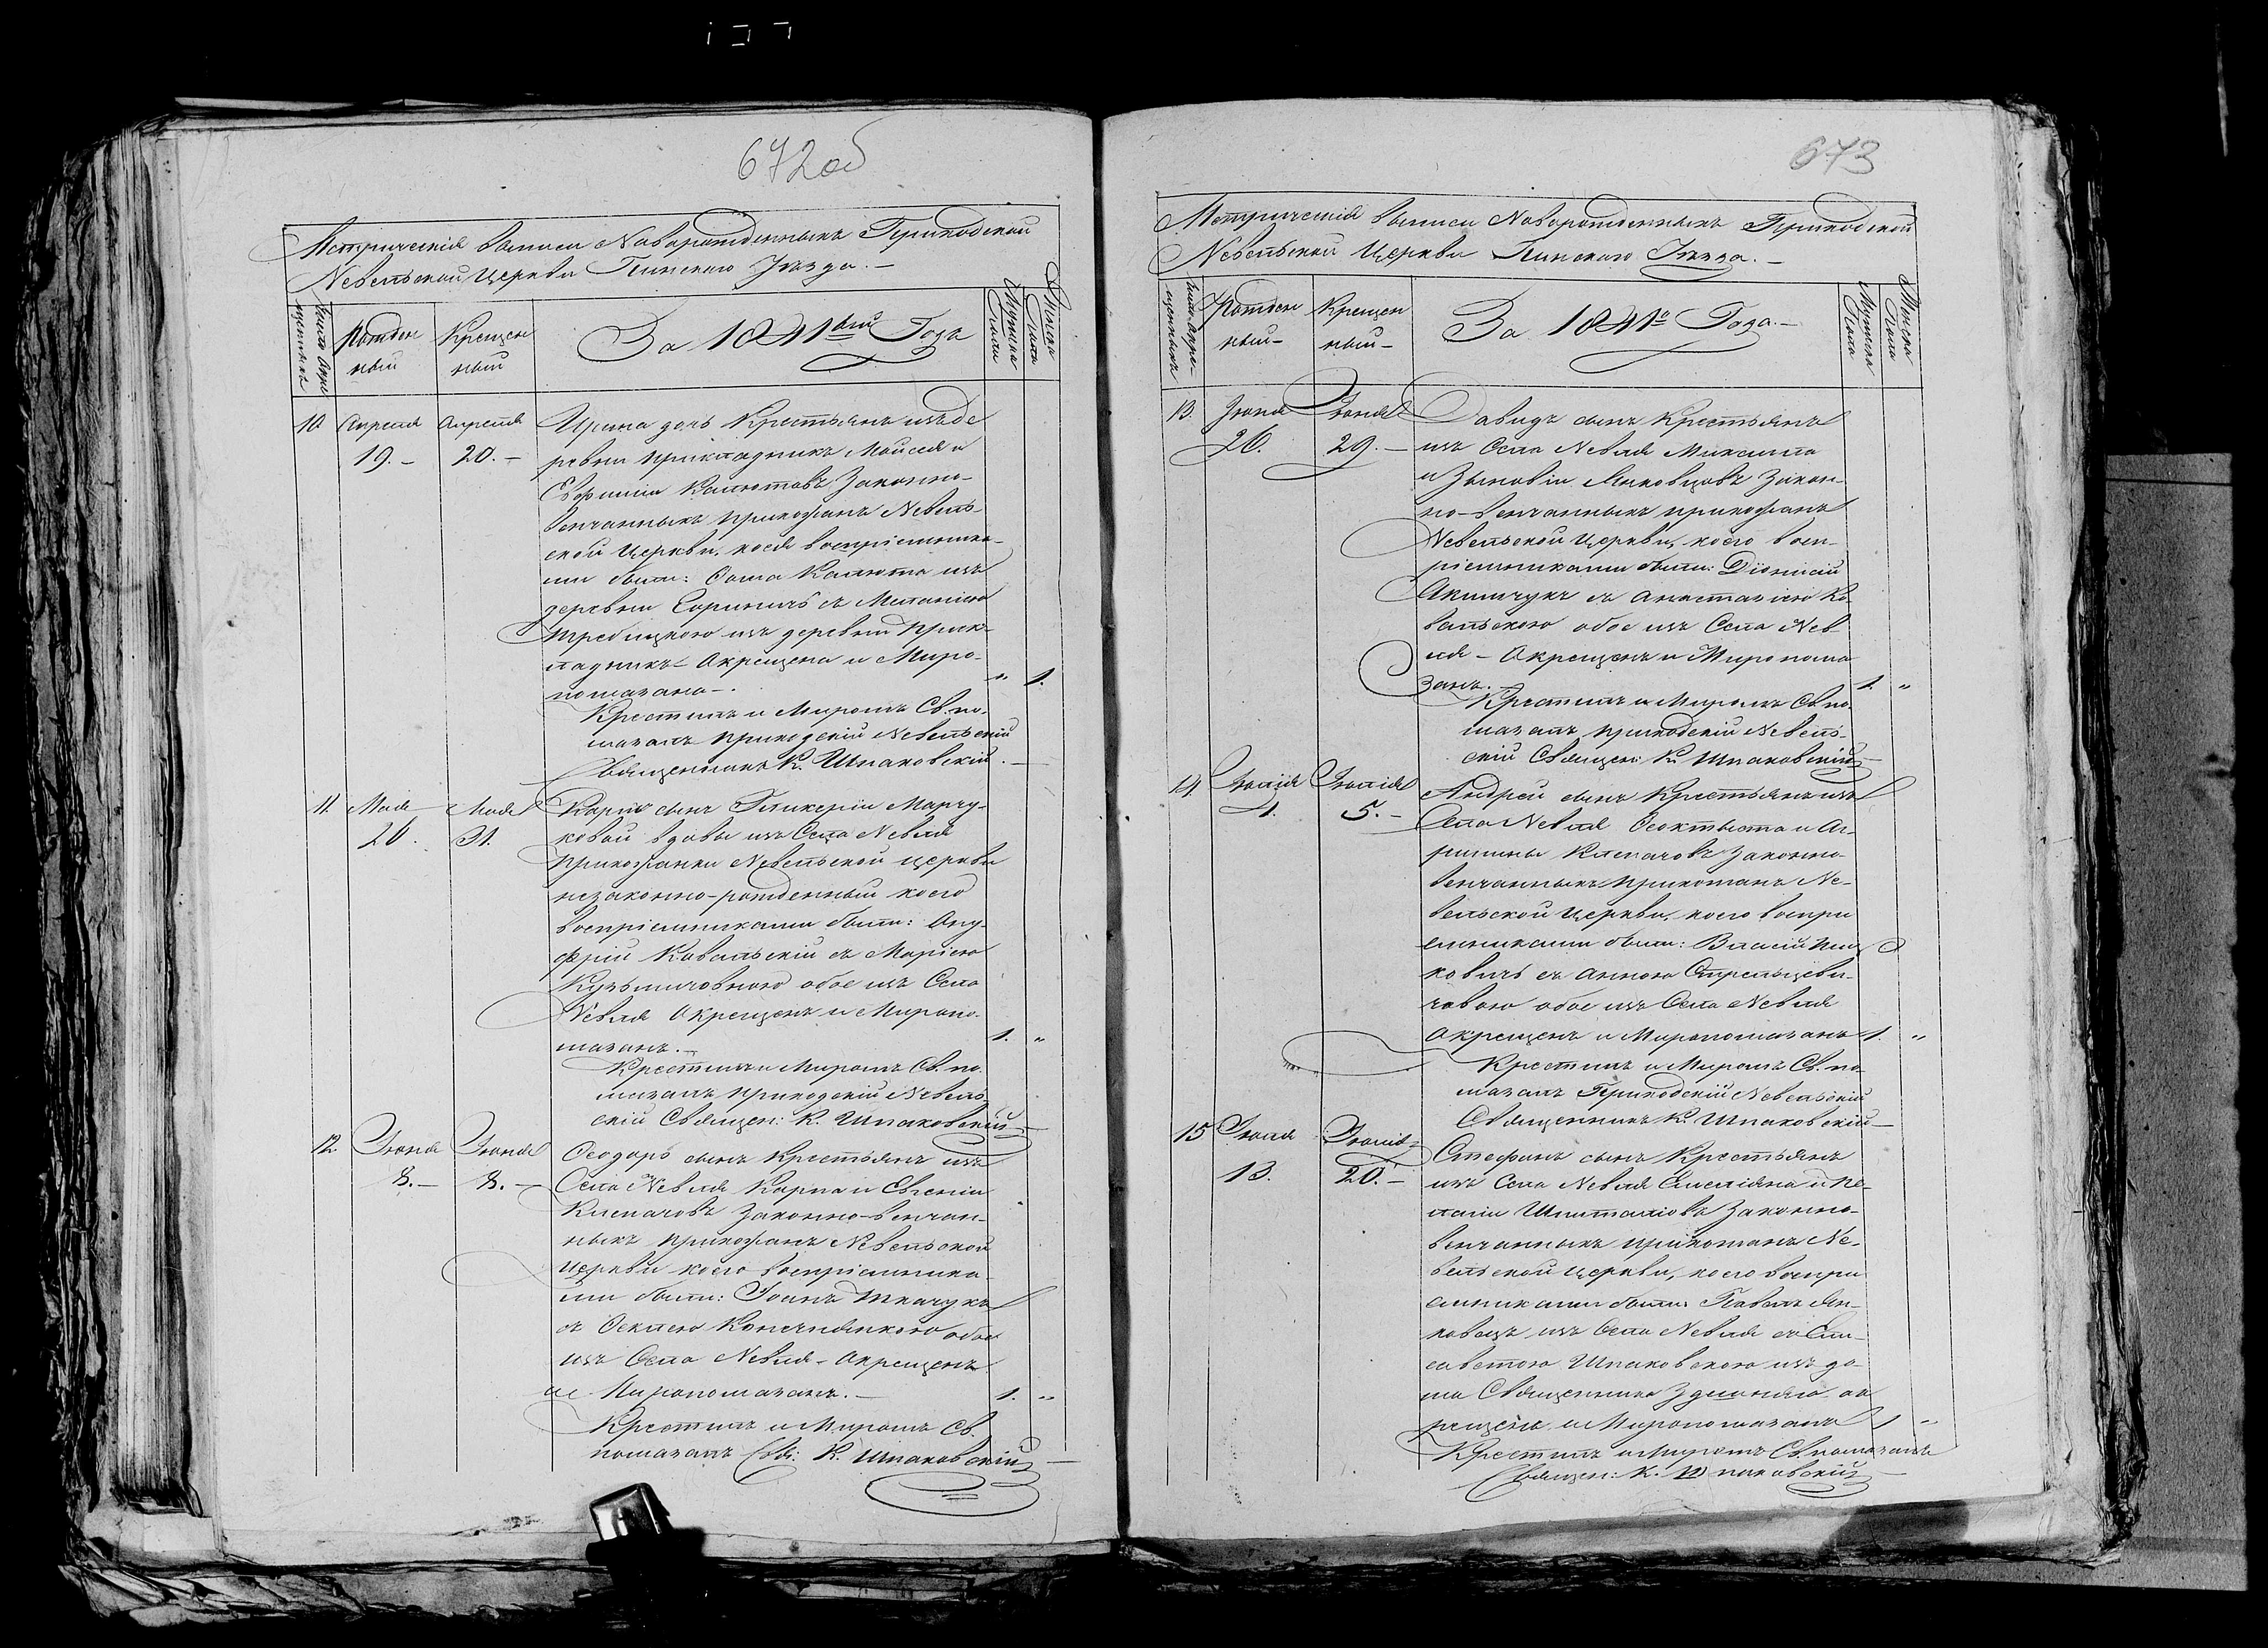 672об
Метрическія выписи Новорожденныхъ Приходской
Невельской Церкви Пинскаго Уѣзда. –
Рожден
ный
Крещен
ный
За 1841ый Годъ
Мужеска
пола
Женска
пола
10. Апреля 19. – Апреля 20. –
Ирина дочь Крестьянъ изъ де
ревни Прикладникъ Моисея и
Евфиміи Калютовъ Законно-
венчанныхъ прихожанъ Невель-
ской Церкви, коея воспріемника-
ми были: Фома Калюта изъ
деревни с Меланіею
изъ деревни Прик-
ладникъ Окрещена и Миро-
помазана –.
" 1.
Крестилъ и Миромъ Св. по-
мазалъ приходскій Невельскій
Священникъ К. Шпаковскій. –
11. Мая 26. Мая 31.
Карпъ сынъ Гликеріи Марчу-
ковой вдовы изъ Села Невля
Прихожанки Невельской церкви
незаконно-рожденный коего
воспріемниками были: Ону-
фрій Ковальскій съ Маріею
Кузьмичовною обое изъ Села
Невля Окрещенъ и Миропо-
мазанъ. –
1. "
Крестилъ и Миромъ Св. по-
мазалъ приходскій Невель-
скій Священ: К. Шпаковскій –
12. Іюня 8. – Іюня 8. –
Феодоръ сынъ Крестьянъ изъ
Села Невля Карпа и Евгеніи
Клепачовъ Законно-венчан-
ныхъ прихожанъ Невельской
Церкви коего воспріемника-
ми были: Іоанъ Ткачукъ
съ Феклею обое
изъ Села Невля – Окрещенъ
и Миропомазанъ. –
1. "
Крестилъ и Миромъ Св.
помазалъ Свя: К. Шпаковскій –
673
Метрическія выписи Новорожденныхъ Приходской
Невельской Церкви Пинскаго Уѣзда. –
Рожден
ный –
Крещен
ный –
За 1841о Года. –
Мужеска
пола
Женска
пола
13. Іюня 26. Іюня 29. –
Давидъ сынъ Крестьянъ
изъ Села Невля Михаила
и Зыновіи Законн-
но-венчанныхъ прихожанъ
Невельской Церкви, коего восп-
ріемниками были: Діонисій
Акимчукъ съ Анастазіею Ко-
вальскою обое изъ Села Нев-
ля – Окрещенъ и Миропома-
занъ. –
1. "
Крестилъ и Миромъ Св. по-
мазалъ приходскій Невель-
скій Священ: К. Шпаковскій –
14. Іюлія 4. Іюлія 5. –
Андрей сынъ Крестьянъ изъ
Села Невля Феоктыста и Аг-
рипины Клепачовъ Законно-
венчанныхъ прихожанъ Не-
вельской Церкви, коего воспрі
емниками были: Власій
съ Анною Стрельцеви-
човою обое изъ Села Невля
Окрещенъ и Миропомазанъ 1. "
Крестилъ и Миромъ Св. по-
мазалъ Приходскій Невельскій
Священникъ К. Шпаковскій –
15 Іюля 13. Іюлія 20. –
Стефанъ сынъ Крестьянъ
изъ Села Невля Емеліяна и Пе-
лагіи Законно-
венчанныхъ прихожанъ Не-
вельской Церкви, коего воспри
емниками были: Павелъ Ян-
ковецъ изъ Села Невля съ Ели-
саветою Шпаковскою изъ до-
ма Священника здешняго – ок
рещенъ и Миропомазанъ 1 "
Крестилъ и Миромъ Св. помазалъ
Священ: К. Шпаковскій –